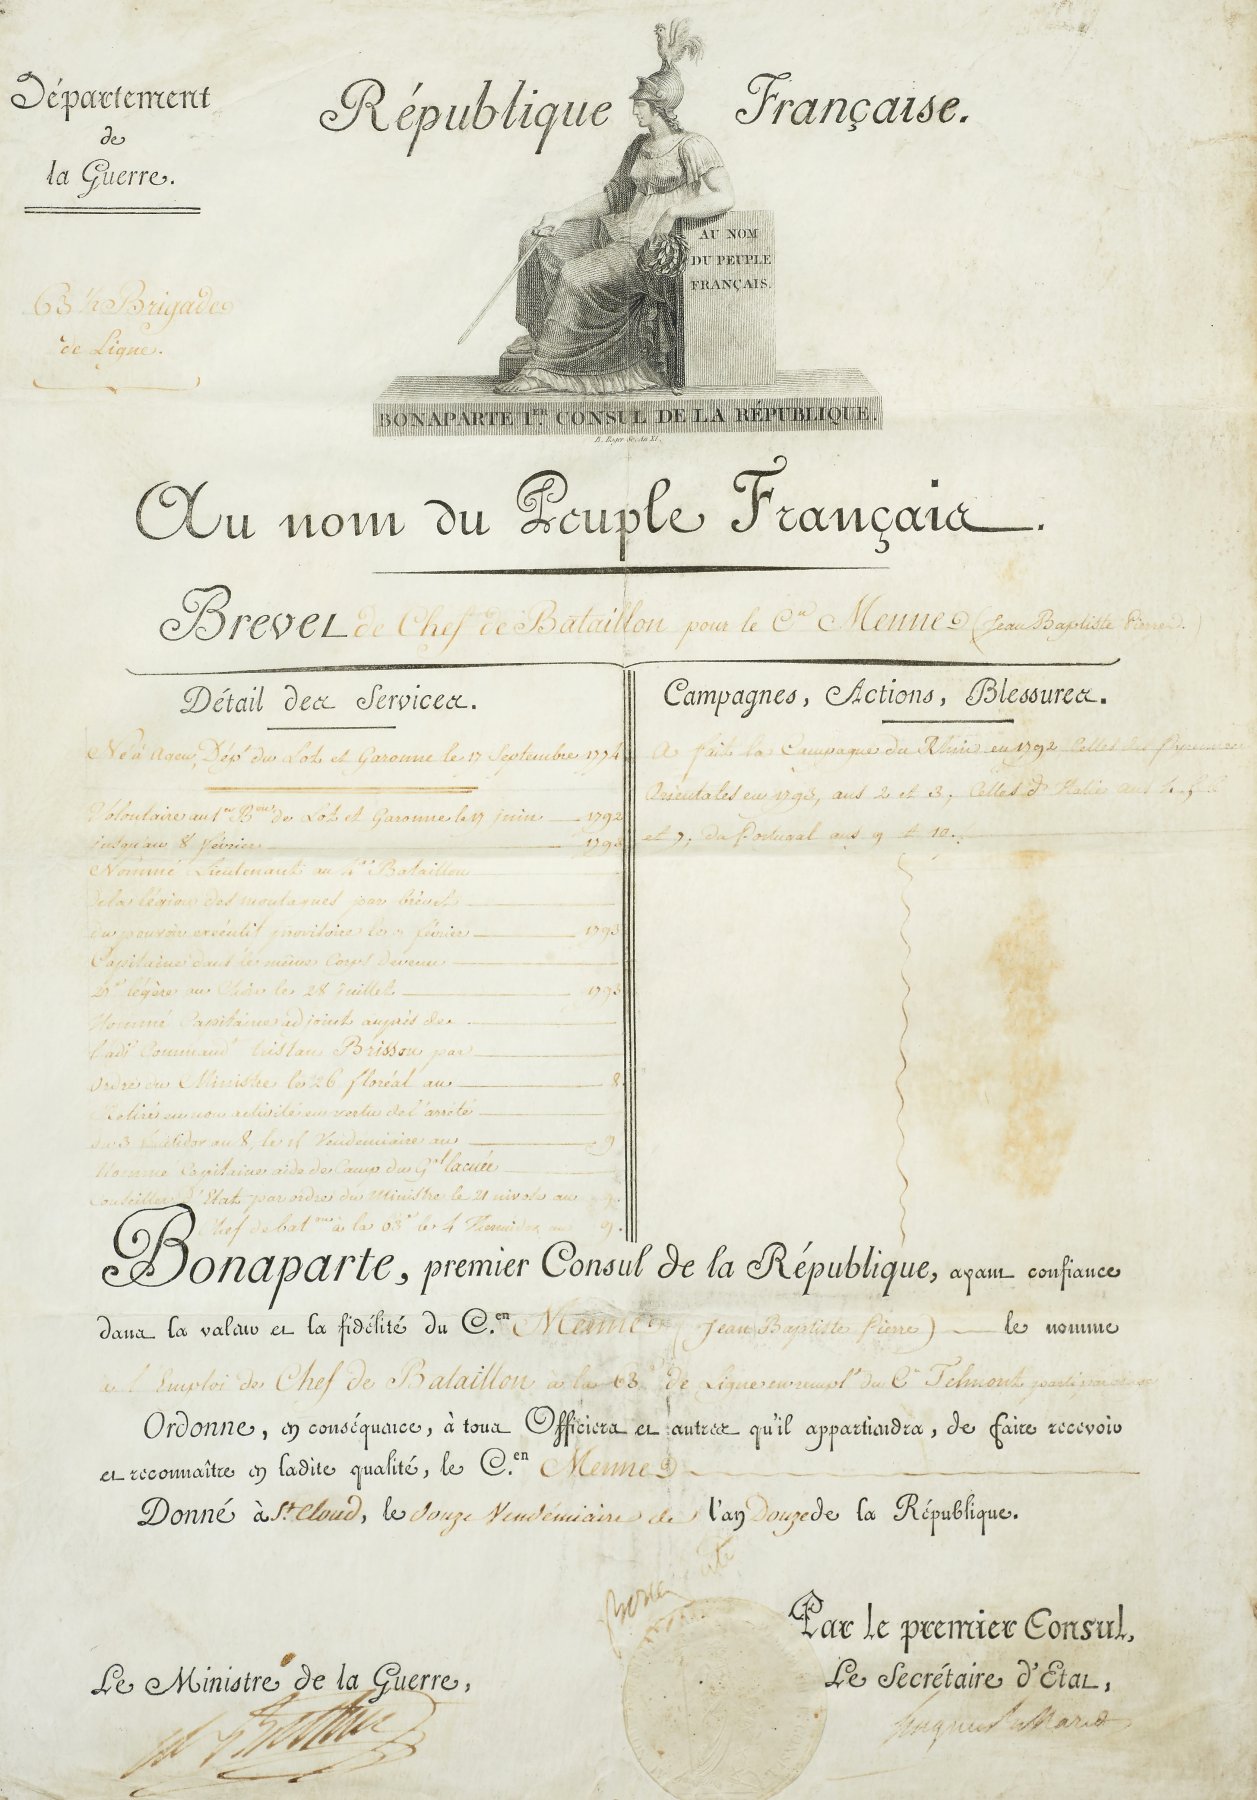 Département
de
la Guerre.
République Française.
AU NOM
DU PEUPLE
FRANÇAIS.
63 ½ Brigade
de Ligne.
BONAPARTE 1er. CONSUL DE LA RÉPUBLIQUE.
B. Roger Sc. An XI.
Au nom du Peuple Français.
Brevet de Chef de Bataillon pour le Cen Menne (Jean Baptiste Pierre.)
Détail des Services.
Né à Agen, Dépt du Lot et Garonne le 17 Septembre 1774
Volontaire au 1er Bon de Lot et Garonne le 17 juin 1792
jusqu'au 8 février 1793
Nommé Lieutenant au Bataillon
de la légion des montagnes par brévet
du pouvoir exécutif provisoire le février 1793
Capitaine dans le même Corps devenu
légère au le 28 juillet 1793
Nommé Capitaine adjoint auprès de
l'adjt Commandt tristan Brisson par
ordre du Ministre le 26 floréal an 8
Retiré en non activité en vertu de l'arrêté
du 3 an 8, le Vendemiaire an 9
Nommé Capitaine aide de Camp du Gal lacuée
Conseiller d'Etat par ordre du Ministre le 21 nivose an 9.
Chef de baton à la 63e le 4 Thermidor an 9.
Campagnes, Actions, Blessures.
A fait la Campagne du Rhin en 1792 Celles des Pyrennées
Orientales en 1793, ans 2 et 3, Celles d'Italie ans
et 7, du Portugal ans 9 et 10.
Bonaparte, premier Consul de la République, ayant confiance
dans la valeur et la fidélité du C.en Menne (Jean Baptiste Pierre) le nomme
à l'Emploi de Chef de Bataillon à la 63e de Ligne en remplt du Cen Telmont
Ordonne, en conséquence, à tous Officiers et autres qu'il appartiendra, de faire recevoir
et reconnaître en ladite qualité, le C.en Menne
Donné à St Cloud, le douze Vendémiaire de l'an Douze de la République.
Bonaparte
Par le premier Consul,
Le Ministre de la Guerre,
Le Secrétaire d'Etat,
Hugues B. Maret